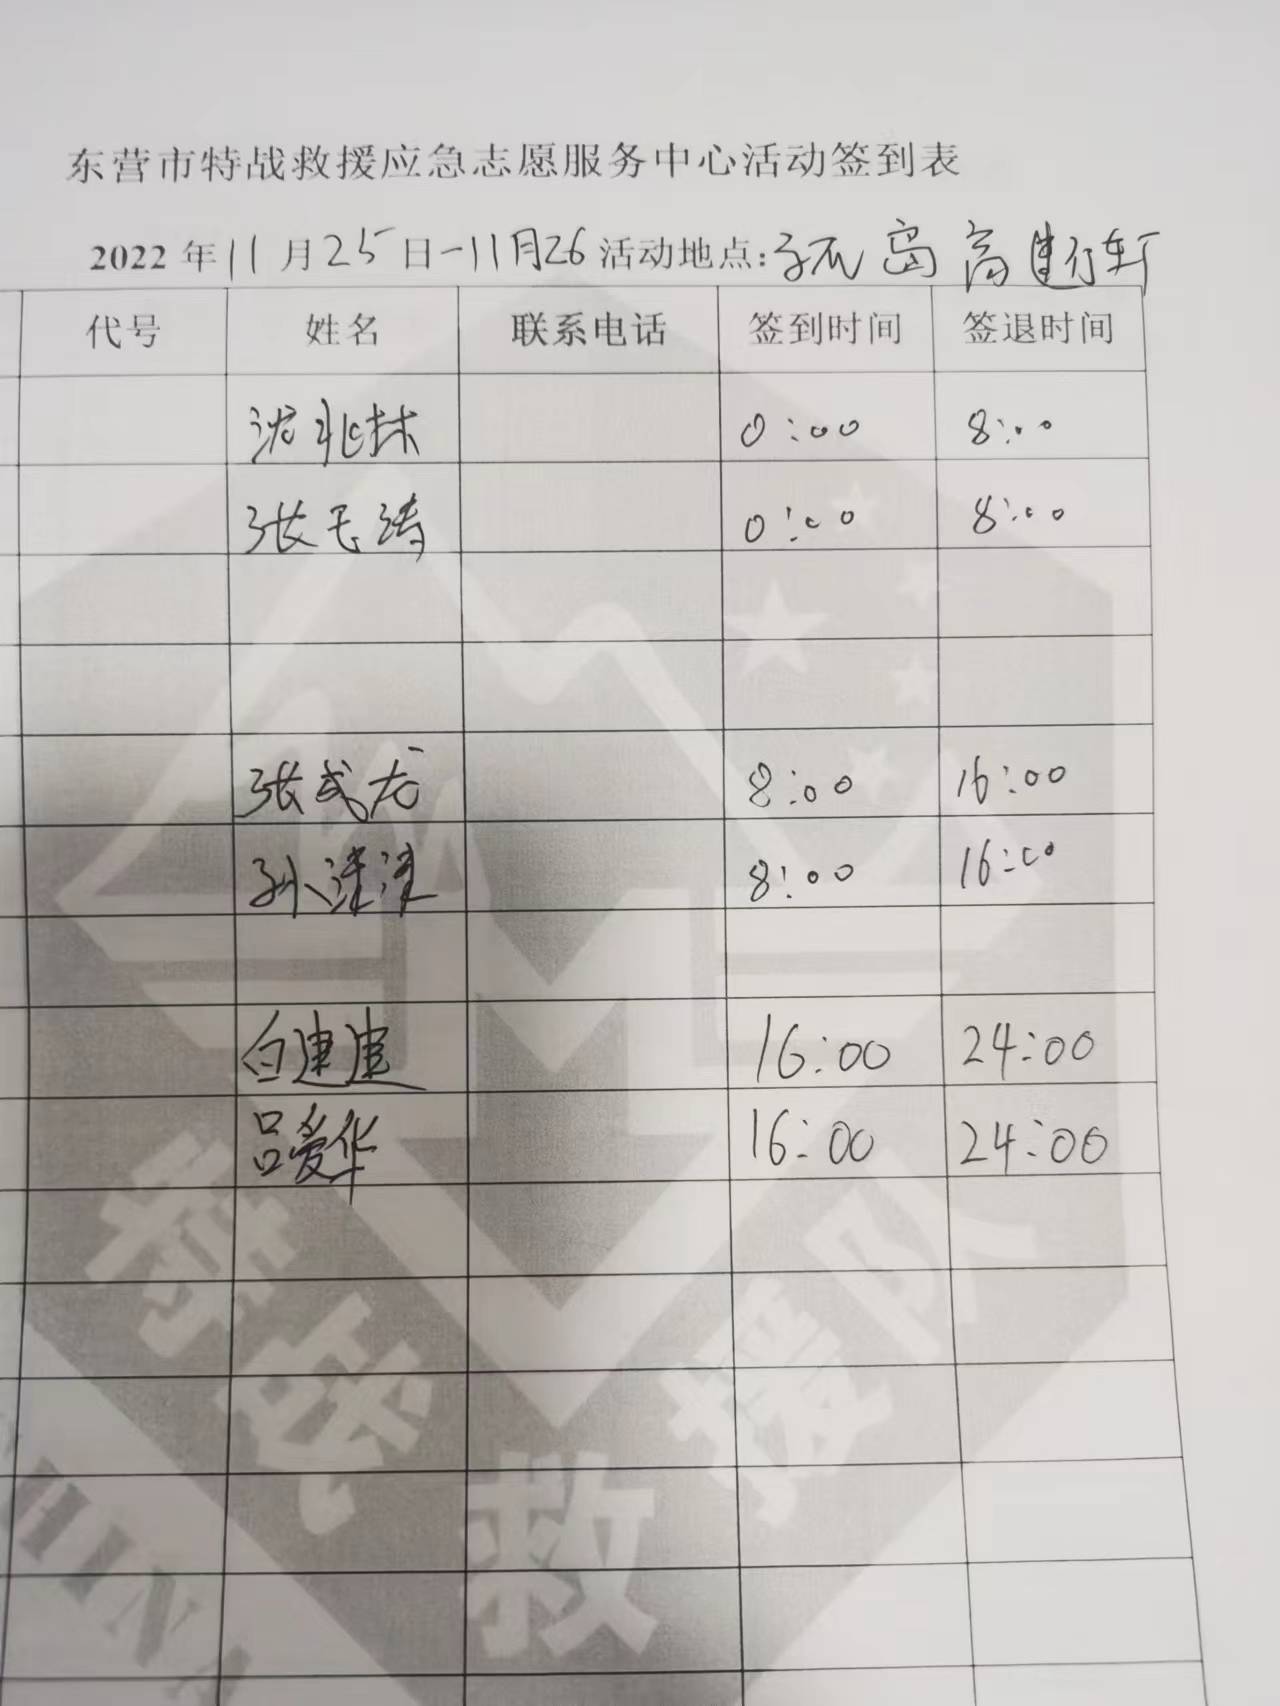 东营市特战救援应急志愿服务中心活动签到表
2022年11月25日-11月26活动地点:孤岛高
代号 姓名 联系电话 签到时间 签退时间
沈兆林 0:00 8:00
张玉涛 0:00 8:00
张武龙 8:00 16:00
孙津津 8:00 16:00
白建建 16:00 24:00
吕爱华 16:00 24:00
特战救援队